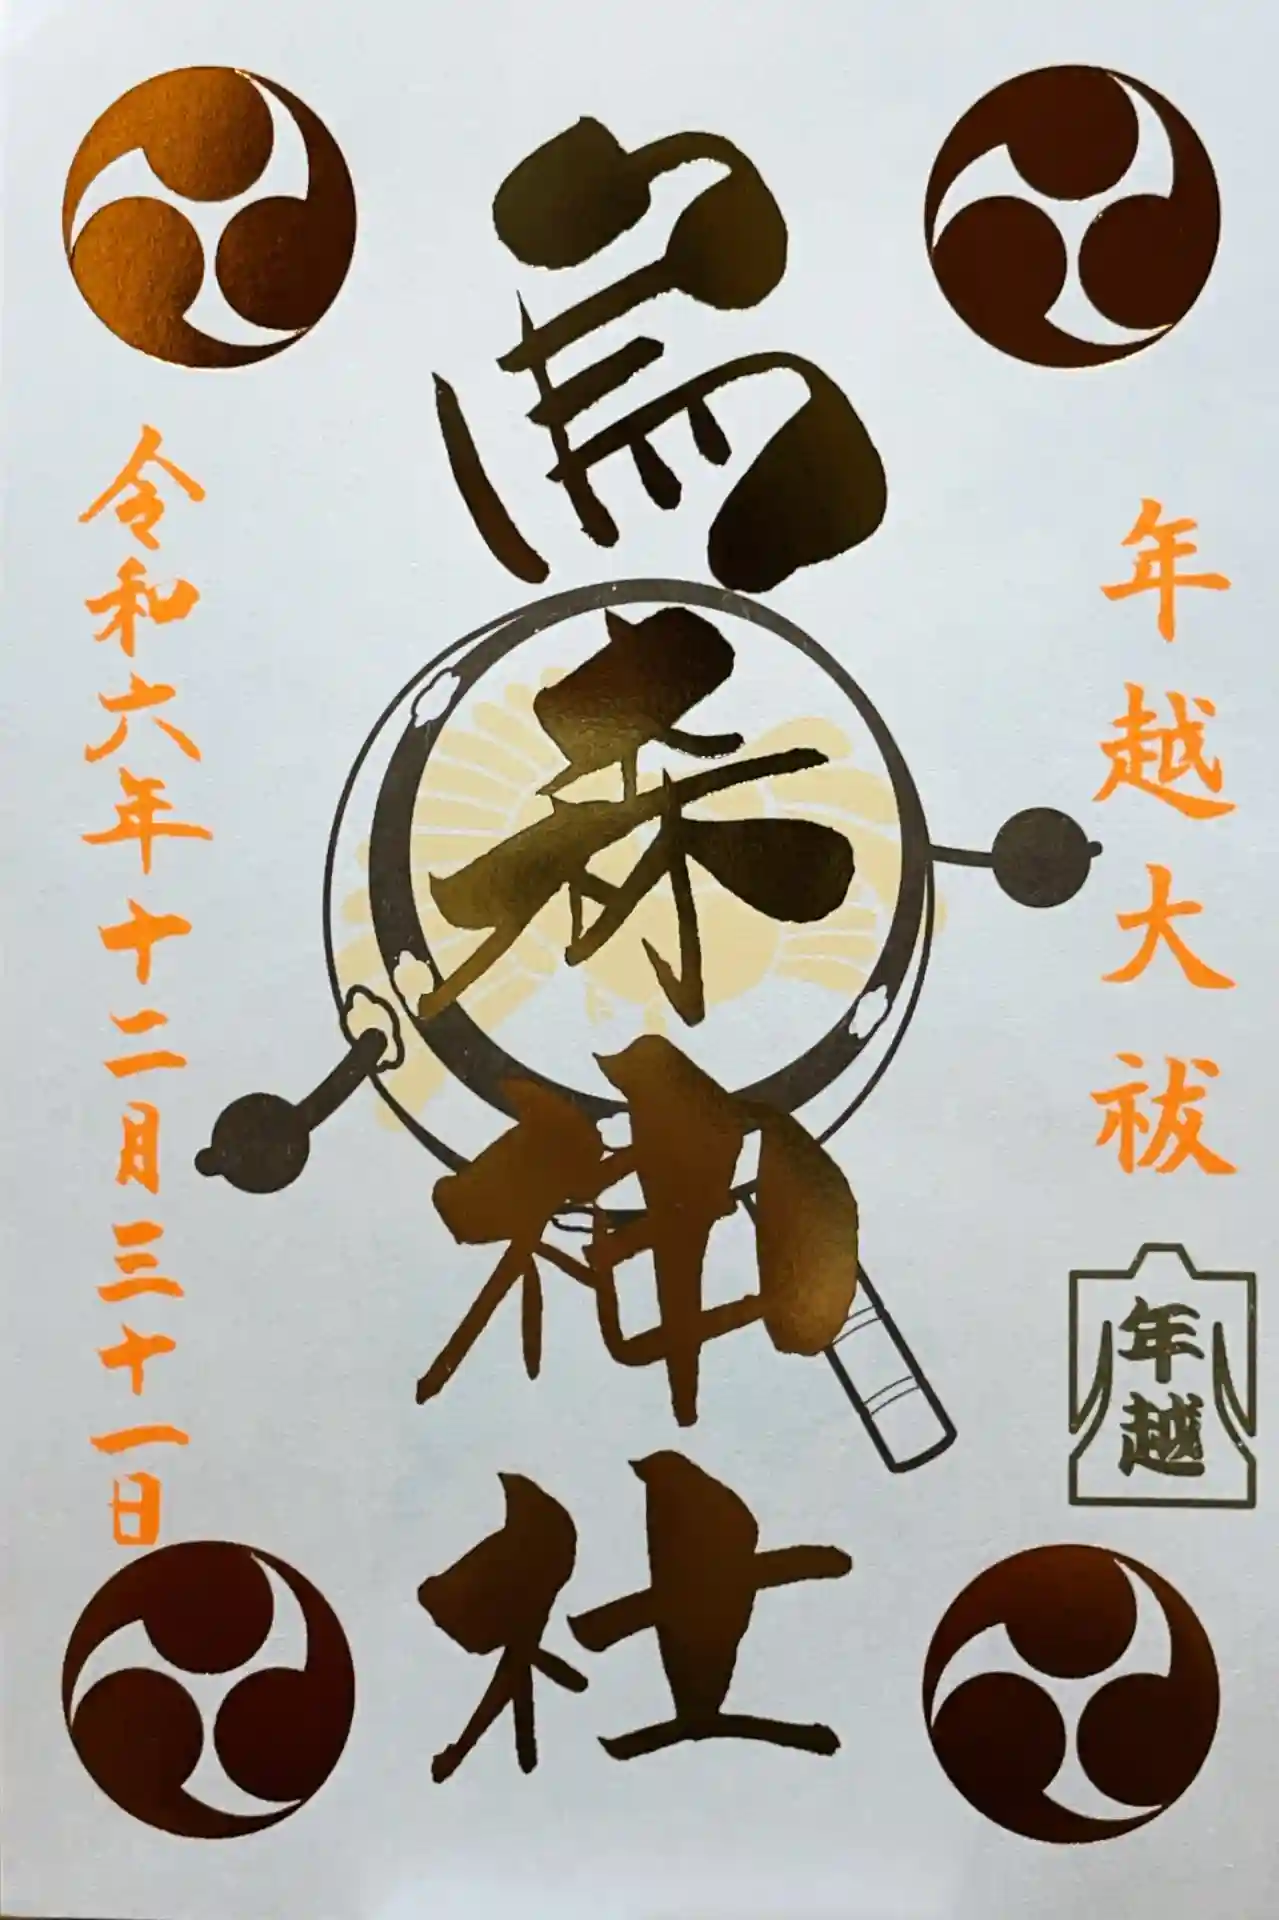 年越大祓
年越
烏森神社
令和六年十二月三十一日